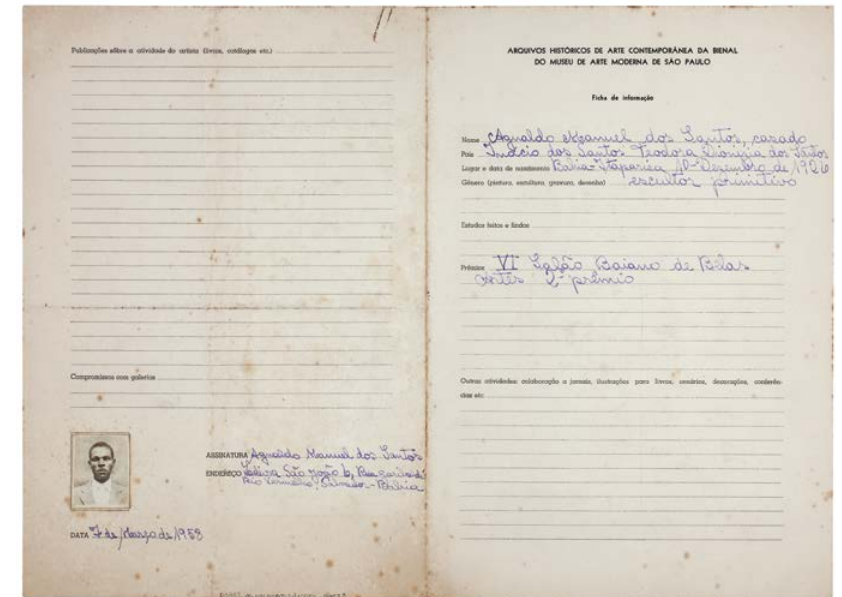 Publicações sôbre a atividade do artista (livros, catálogos etc.)
Compromissos com galerias
ASSINATURA Agnaldo Manuel dos Santos
ENDEREÇO Ladeira São João 6, Rua
Rio Vermelho, Salvador-Bahia
DATA 7 de Março de 1958
ARQUIVOS HISTÓRICOS DE ARTE CONTEMPORÂNEA DA BIENAL
DO MUSEU DE ARTE MODERNA DE SÃO PAULO
Ficha de informação
Nome Agnaldo Manuel dos Santos, casado
Pais Inácio dos Santos Teodora Dionizia dos Santos
Lugar e data de nascimento Bahia-Itaparica 10-Dezembro de 1926
Gênero (pintura, escultura, gravura, desenho) escultor primitivo
Estudos feitos e findos
Prêmios VI Salão Baiano de Bélas
Artes 2º prêmio
Outras atividades: colaboração a jornais, ilustrações para livros, cenários, decorações, conferên-
cias etc.